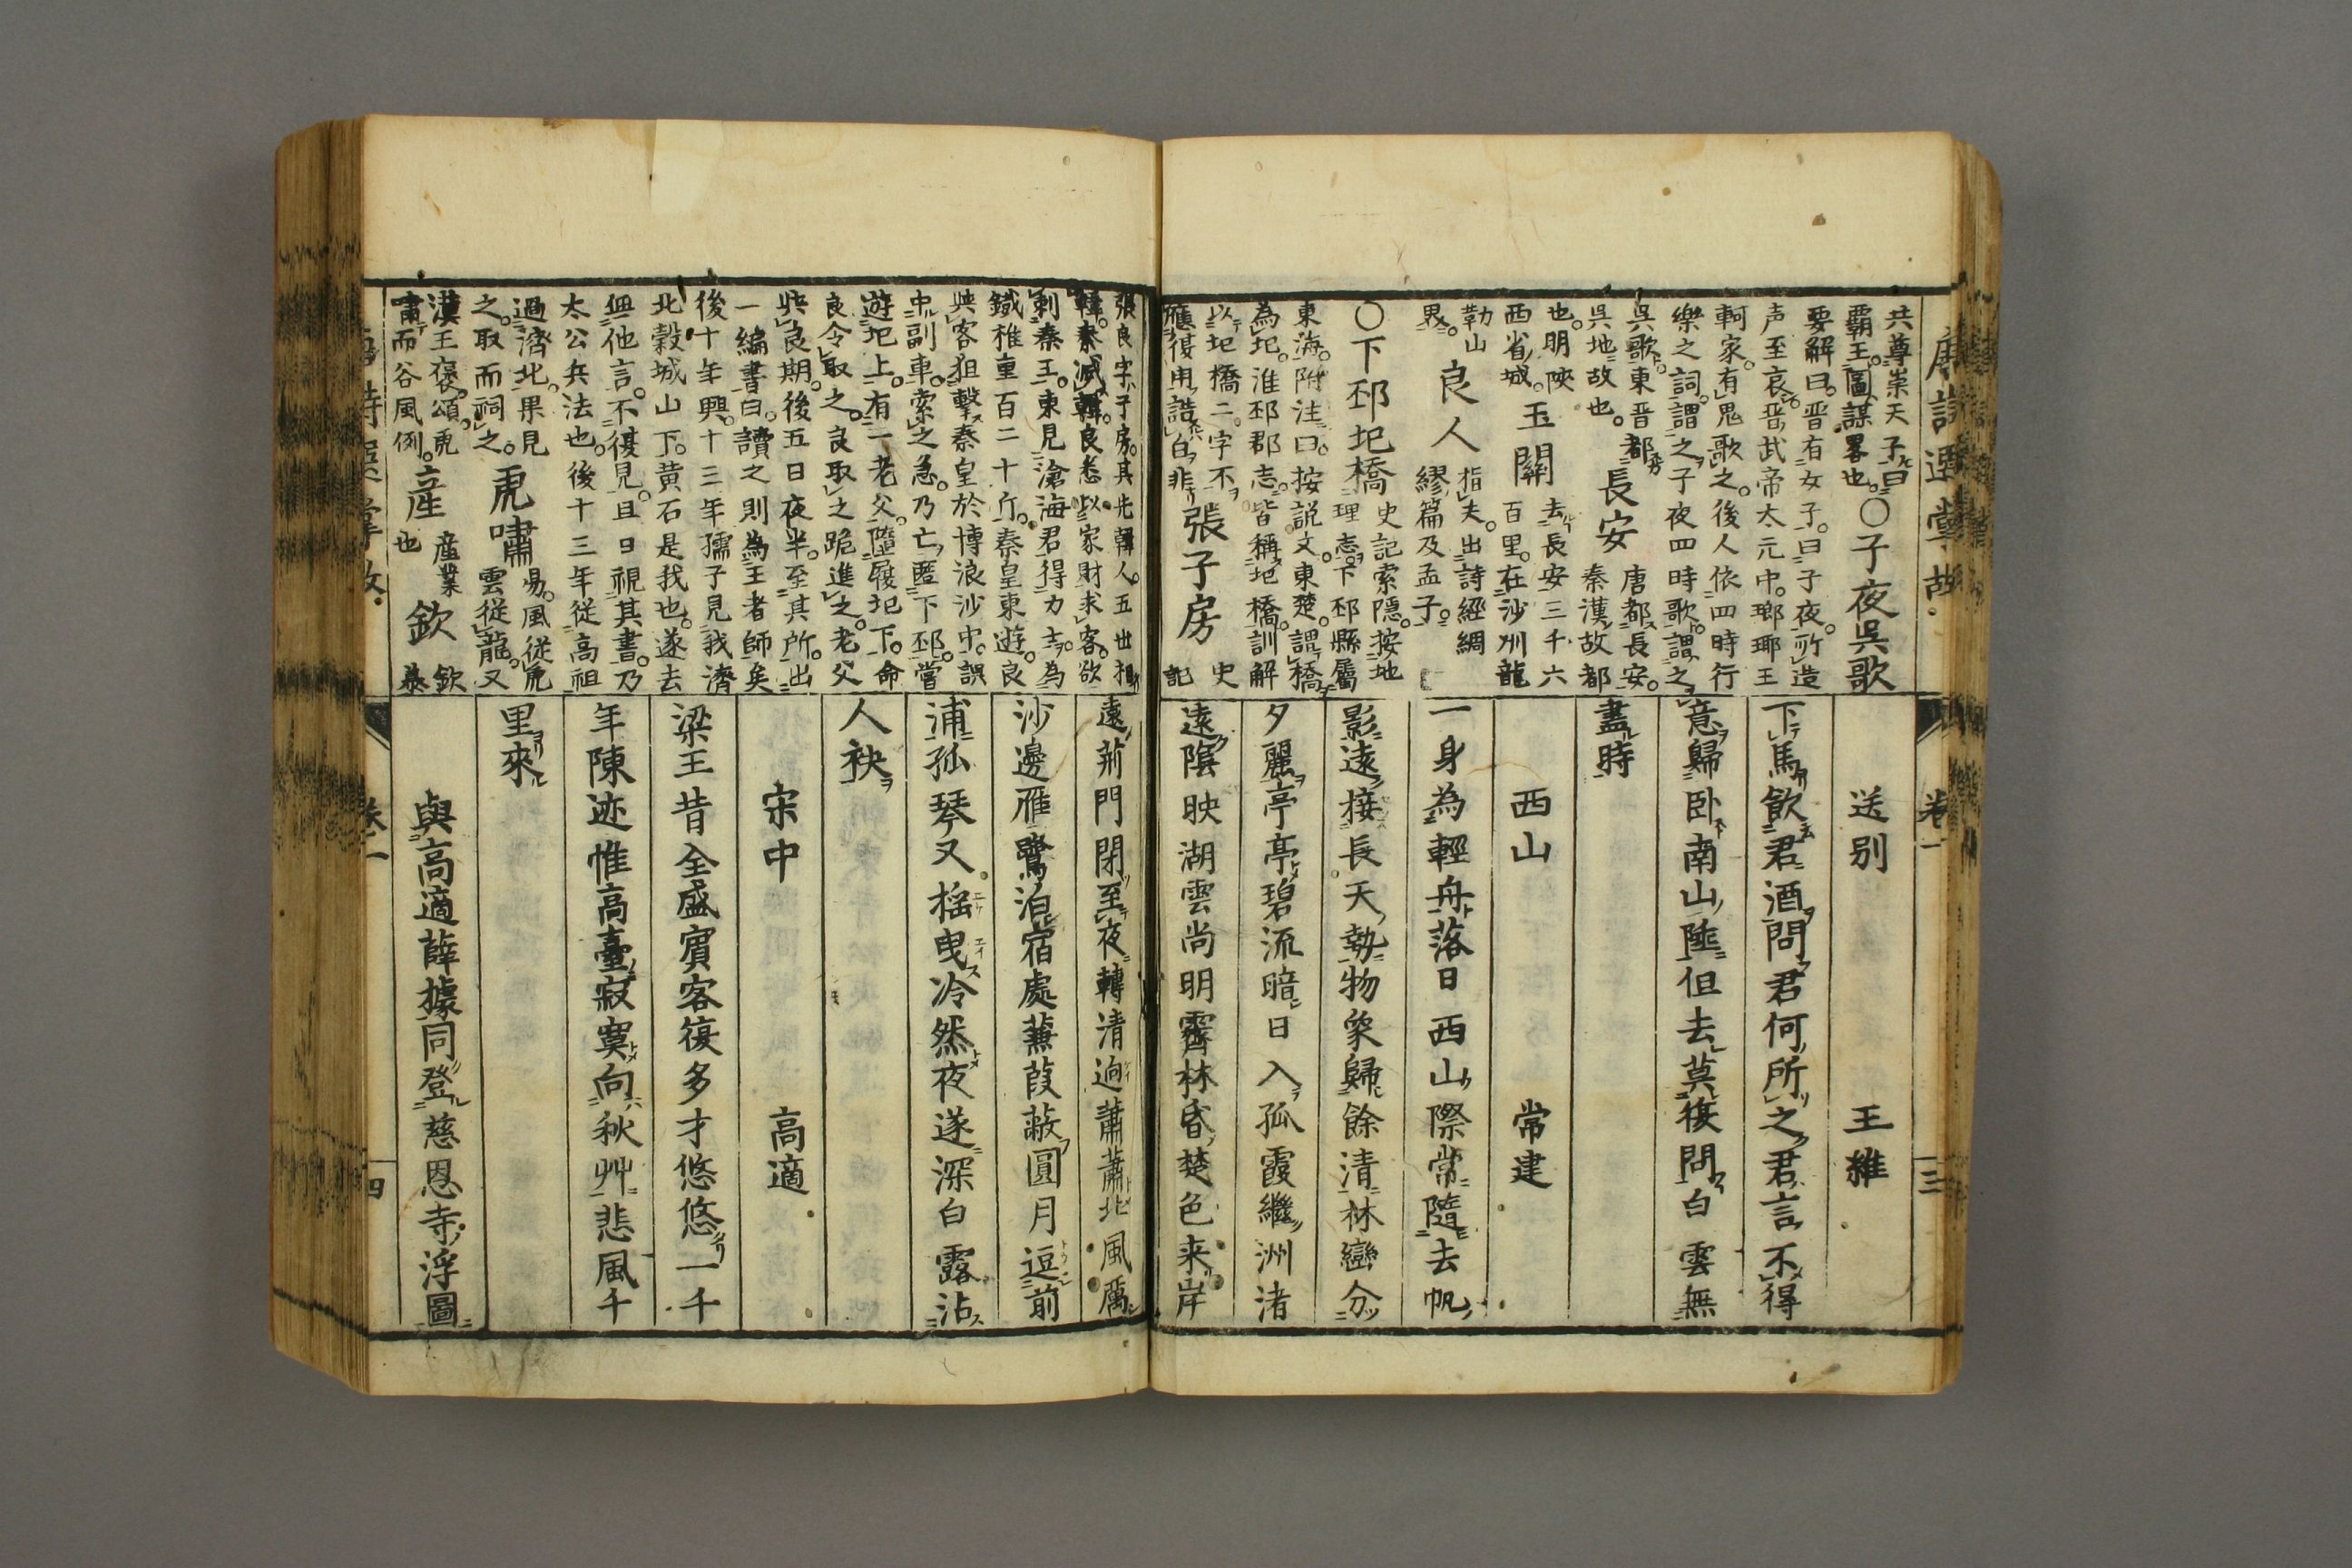 唐詩選掌故
卷一
三
共尊崇天子曰
霸王。圖謀畧也。
〇子夜吳歌
要解曰。晋有女子。曰子夜。所造
声至哀。晋武帝太元中。瑯琊王
軻家。有鬼歌之。後人依四時行
樂之詞。謂之子夜四時歌。謂之
吳歌。東晋都
吳地故也。
長安
唐都長安。
秦漢故都
也。明陝
西省城。
玉關
去長安三千六
百里。在沙州龍
勒山
界。
良人
指夫。出詩經綢
繆篇及孟子。
〇下邳圯橋
史記索隱。按地
理志。下邳縣屬
東海。附注曰。按説文。東楚。謂橋
為圯。淮邳郡志。皆稱圯橋。訓解
以圯橋二字不
應復用。誥白非
張子房
史
記
送別　王維
下馬飲君酒問君何所之君言不得
意歸卧南山陲但去莫復問白雲無
盡時
西山　常建
一身為輕舟落日西山際常隨去帆
影遠接長天勢物象歸餘清林巒分
夕麗亭亭碧流暗日入孤霞繼洲渚
遠陰映湖雲尚明霽林昏楚色来岸
張良字子房。其先韓人。五世相
韓。秦滅韓。良悉以家財求客。欲
刺秦王。東見滄海君得力士。為
鐵椎重百二十斤。秦皇東遊。良
與客狙擊秦皇於博浪沙中。誤
中副車。索之急。乃亡匿下邳。嘗
遊圯上。有一老父。墮履圯下。命
良令取之。良取之跪進之。老父
與良期。後五日夜半。至其所。出
一編書曰。讀之則為王者師矣
後十年興。十三年孺子見我濟
北穀城山下。黄石是我也。遂去
無他言。不復見。且日視其書。乃
太公兵法也。後十三年従高祖
過濟北。果見
之。取而祠之。
虎嘯
易。風従虎
雲従龍。又
漢王褒頌。虎
嘯而谷風例。
産
産業
也
欽
欽
慕
遠荊門閉至夜轉清逈蕭蕭北風厲
沙邊雁鷺泊宿處蒹葭蔽圓月逗前
浦孤琴又摇曳冷然夜遂深白露沾
人袂
宋中　高適
梁王昔全盛賓客復多才悠悠一千
年陳迹惟高臺寂寞向秋艸悲風千
里來
與高適薛據同登慈恩寺浮圖
卷一
四